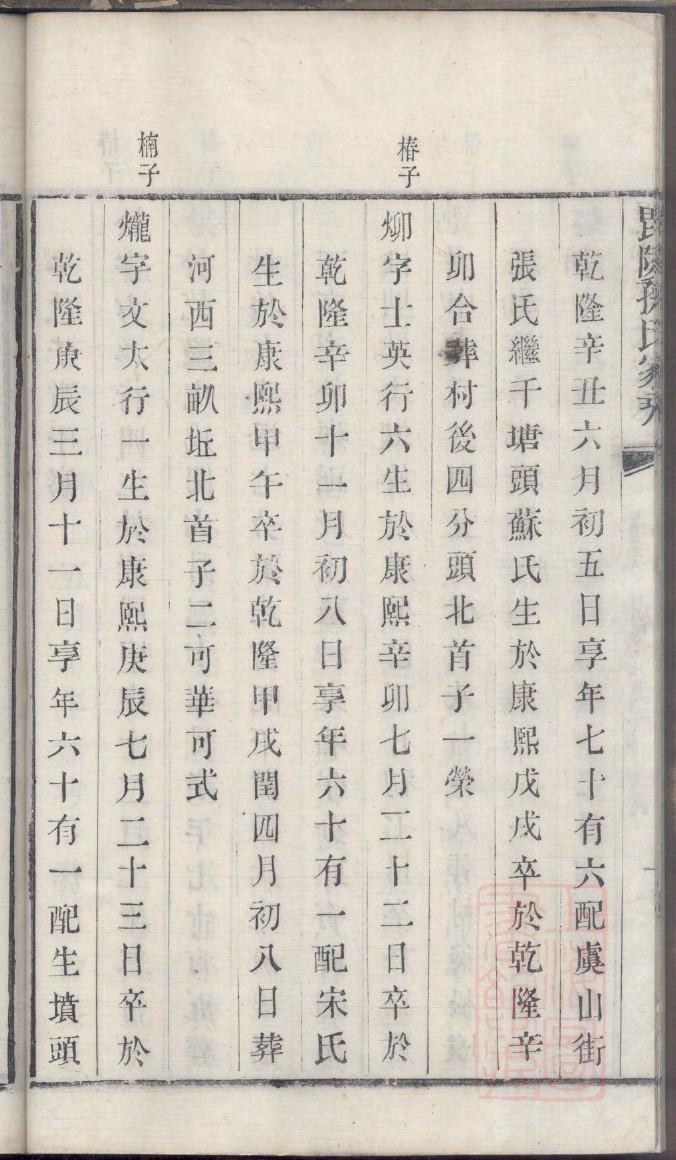 毘陵孫氏家乘
乾隆辛丑六月初五日享年七十有六配虞山街
張氏繼千塘頭蘇氏生於康熙戊戌卒於乾隆辛
卯合葬村後四分頭北首子一榮
椿子
㶭字士英行六生於康熙辛卯七月二十二日卒於
乾隆辛卯十一月初八日享年六十有一配宋氏
生於康熙甲午卒於乾隆甲戌閏四月初八日葬
河西三畝坵北首子二可華可式
楠子
爖字文大行一生於康熙庚辰七月二十三日卒於
乾隆庚辰三月十一日享年六十有一配生墳頭